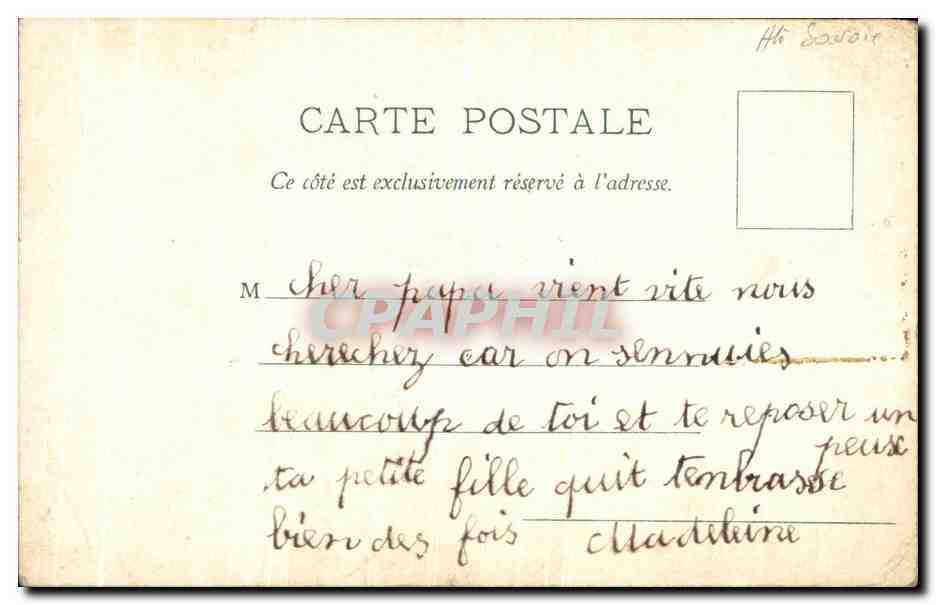 Hte Savoie
CARTE POSTALE
Ce côté est exclusivement réservé à l'adresse.
M cher papa vient vite nous
CPAPHIL
cherechez car on sennuies
beaucoup de toi et te reposer un
peux
ta petite fille quit tenbrasse
bien des fois Madeleine